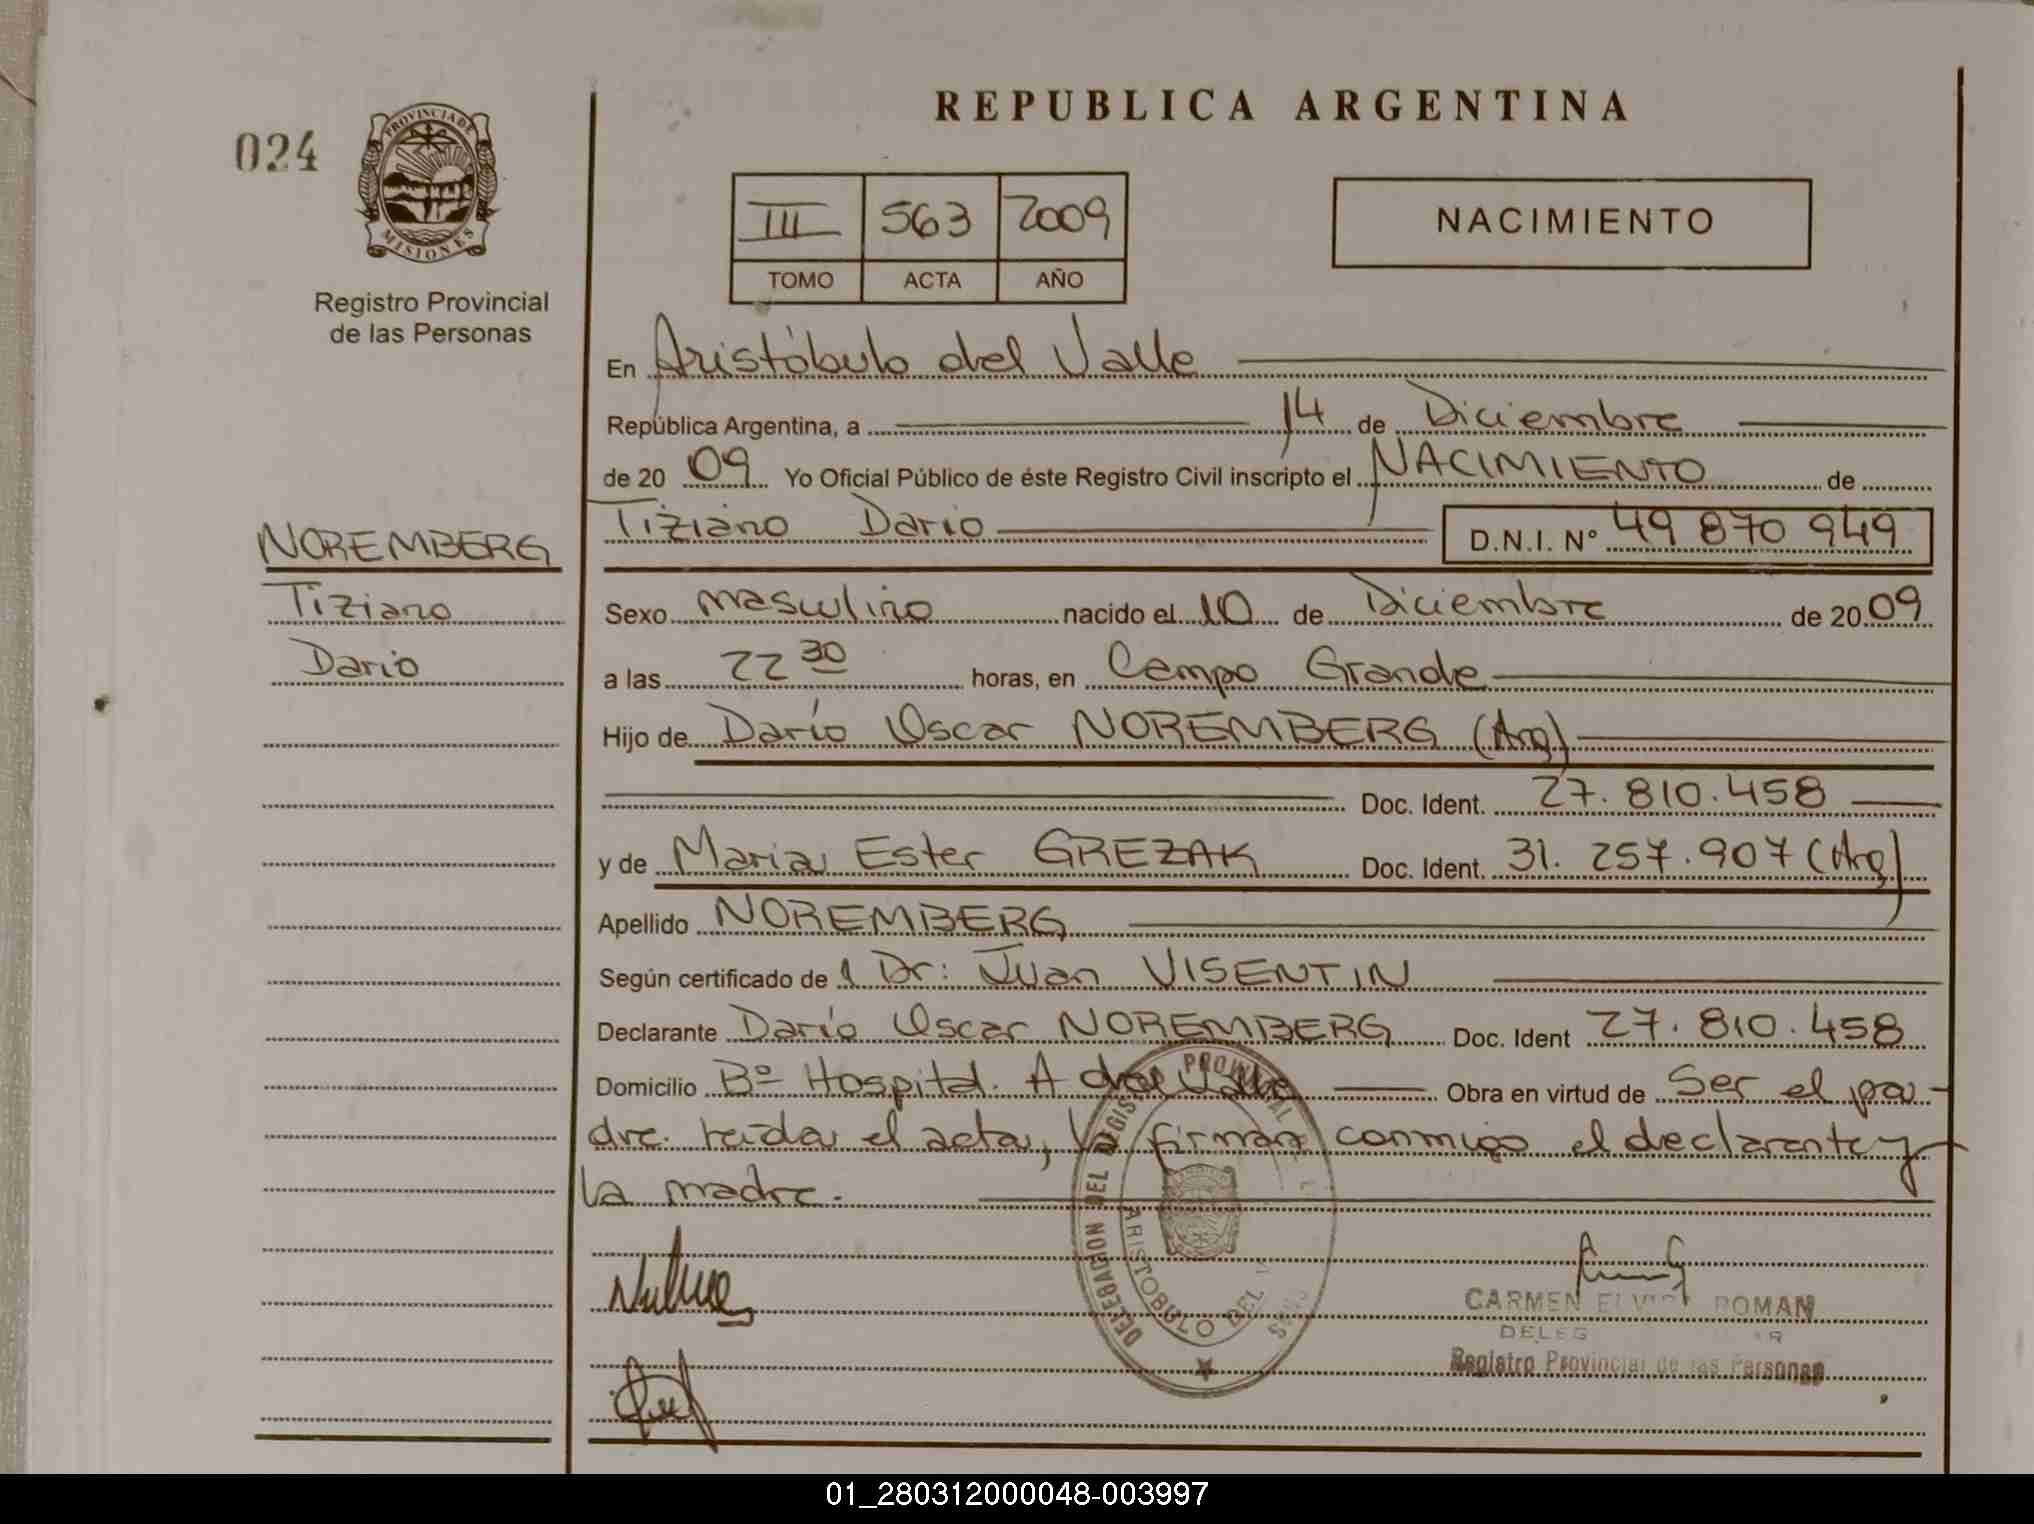 REPUBLICA ARGENTINA
024
PROVINCIA DE
MISIONES
Registro Provincial
de las Personas
III 563 2009
TOMO ACTA AÑO
NACIMIENTO
En Aristóbulo del Valle
República Argentina, a 14 de Diciembre
de 2009 Yo Oficial Público de éste Registro Civil inscripto el NACIMIENTO de
Tiziano Dario D.N.I. N° 49 870 949
NOREMBERG
Tiziano
Dario
Sexo masculino nacido el 10 de Diciembre de 2009
a las 22 30 horas, en Campo Grande
Hijo de Darío Oscar NOREMBERG (Arg)
Doc. Ident. 27.810.458
y de Maria Ester GREZAK Doc. Ident. 31.257.907 (Arg)
Apellido NOREMBERG
Según certificado de Dr: Juan VISENTIN
Declarante Darío Oscar NOREMBERG Doc. Ident 27.810.458
Domicilio Bº Hospital. A del Valle Obra en virtud de Ser el pa-
dre. leida el acta, la firman conmigo el declarante y
la madre.
DELEGACION DEL REGISTRO PROVINCIAL
ARISTOBULO DEL
CARMEN ROMAN
DELEG
Registro Provincial de las Personas
01_280312000048-003997